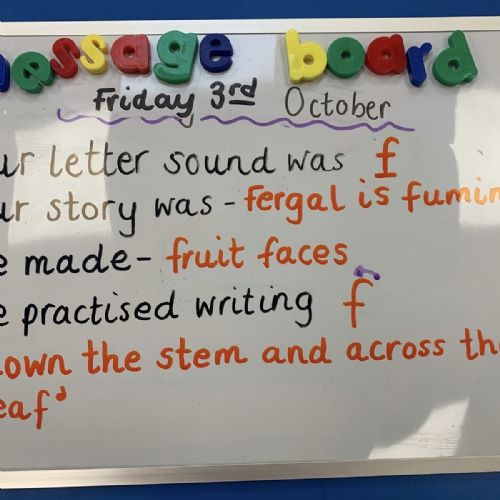 essage board
Friday 3rd October
ur letter sound was f
ur story was - Fergal is fumin
e made - fruit faces
e practised writing f
own the stem and across the
eaf'